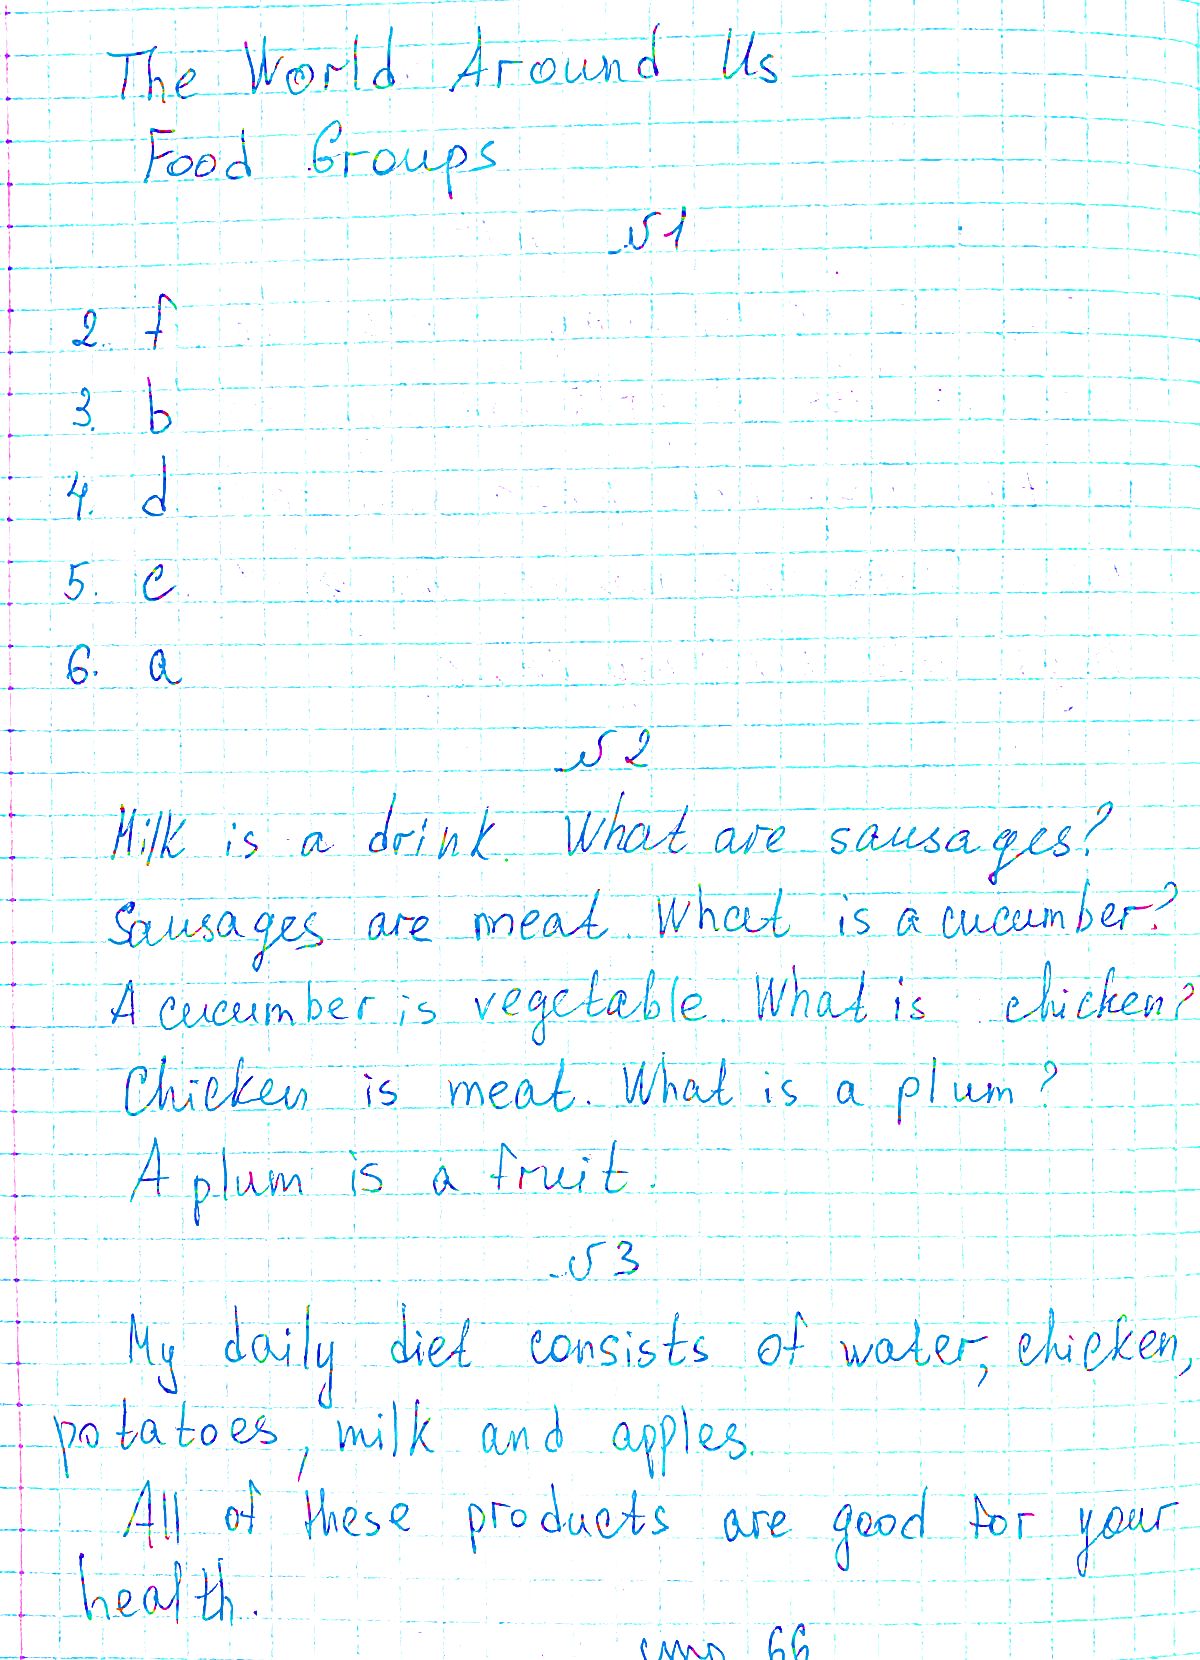 The World Around Us
Food Groups
№1
2. f
3. b
4. d
5. c
6. a
№2
Milk is a drink. What are sausages?
Sausages are meat. What is a cucumber?
A cucumber is vegetable. What is chicken?
Chicken is meat. What is a plum?
A plum is a fruit.
№3
My daily diet consists of water, chicken,
potatoes, milk and apples.
All of these products are good for your
health.
стр 66